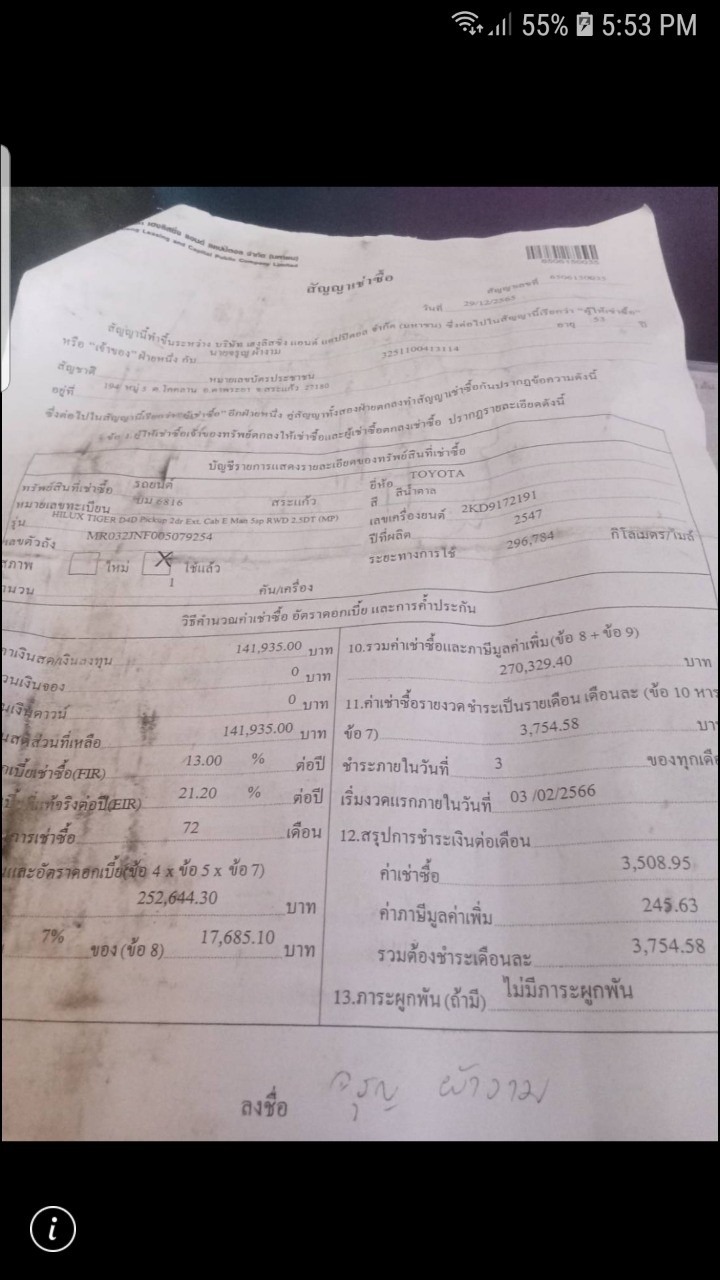 55% 5:53 PM
เฮงลิสซิ่ง แอนด์ แคปปิตอล จำกัด (มหาชน)
Leasing and Capital Public Company Limited
6506130035
สัญญาเช่าซื้อ
สัญญาเลขที่ 6506130035
วันที่ 29/12/2565
สัญญานี้ทำขึ้นระหว่าง บริษัท เฮงลิสซิ่ง แอนด์ แคปปิตอล จำกัด (มหาชน) ซึ่งต่อไปในสัญญานี้เรียกว่า "ผู้ให้เช่าซื้อ"
หรือ "เจ้าของ" ฝ่ายหนึ่ง กับ นายจรูญ ผ้างาม อายุ 53 ปี
สัญชาติ หมายเลขบัตรประชาชน 3251100413114
อยู่ที่ 194 หมู่ 5 ต.โคคลาน อ.ตาพระยา จ.สระแก้ว 27180
ซึ่งต่อไปในสัญญานี้เรียกว่า "ผู้เช่าซื้อ" อีกฝ่ายหนึ่ง คู่สัญญาทั้งสองฝ่ายตกลงทำสัญญาเช่าซื้อกันปรากฏข้อความดังนี้
ข้อ 1 ผู้ให้เช่าซื้อเจ้าของทรัพย์ตกลงให้เช่าซื้อและผู้เช่าซื้อตกลงเช่าซื้อ ปรากฏรายละเอียดดังนี้
บัญชีรายการแสดงรายละเอียดของทรัพย์สินที่เช่าซื้อ
ทรัพย์สินที่เช่าซื้อ รถยนต์ ยี่ห้อ TOYOTA
หมายเลขทะเบียน บม 6816 สระแก้ว สี สีน้ำตาล
รุ่น HILUX TIGER D4D Pickup 2dr Ext. Cab E Man 5sp RWD 2.5DT (MP) เลขเครื่องยนต์ 2KD9172191
เลขตัวถัง MR032JNF005079254 ปีที่ผลิต 2547
สภาพ ใหม่ X ใช้แล้ว ระยะทางการใช้ 296,784 กิโลเมตร/ไมล์
นวน 1 คัน/เครื่อง
วิธีคำนวณค่าเช่าซื้อ อัตราดอกเบี้ย และการค้ำประกัน
าเงินสด/เงินลงทุน 141,935.00 บาท
วนเงินจอง 0 บาท
นเงินดาวน์ 0 บาท
นสดส่วนที่เหลือ 141,935.00 บาท
กเบี้ยเช่าซื้อ(FIR) 13.00 % ต่อปี
เบี้ยที่แท้จริงต่อปี(EIR) 21.20 % ต่อปี
การเช่าซื้อ 72 เดือน
และอัตราดอกเบี้ย(ข้อ 4 x ข้อ 5 x ข้อ 7)
252,644.30 บาท
7% ของ (ข้อ 8) 17,685.10 บาท
10.รวมค่าเช่าซื้อและภาษีมูลค่าเพิ่ม(ข้อ 8 + ข้อ 9)
270,329.40 บาท
11.ค่าเช่าซื้อรายงวด ชำระเป็นรายเดือน เดือนละ (ข้อ 10 หาร
ข้อ 7) 3,754.58 บา
ชำระภายในวันที่ 3 ของทุกเดื
เริ่มงวดแรกภายในวันที่ 03 /02/2566
12.สรุปการชำระเงินต่อเดือน
ค่าเช่าซื้อ 3,508.95
ค่าภาษีมูลค่าเพิ่ม 245.63
รวมต้องชำระเดือนละ 3,754.58
13.ภาระผูกพัน (ถ้ามี) ไม่มีภาระผูกพัน
ลงชื่อ จรูญ ผ้างาม